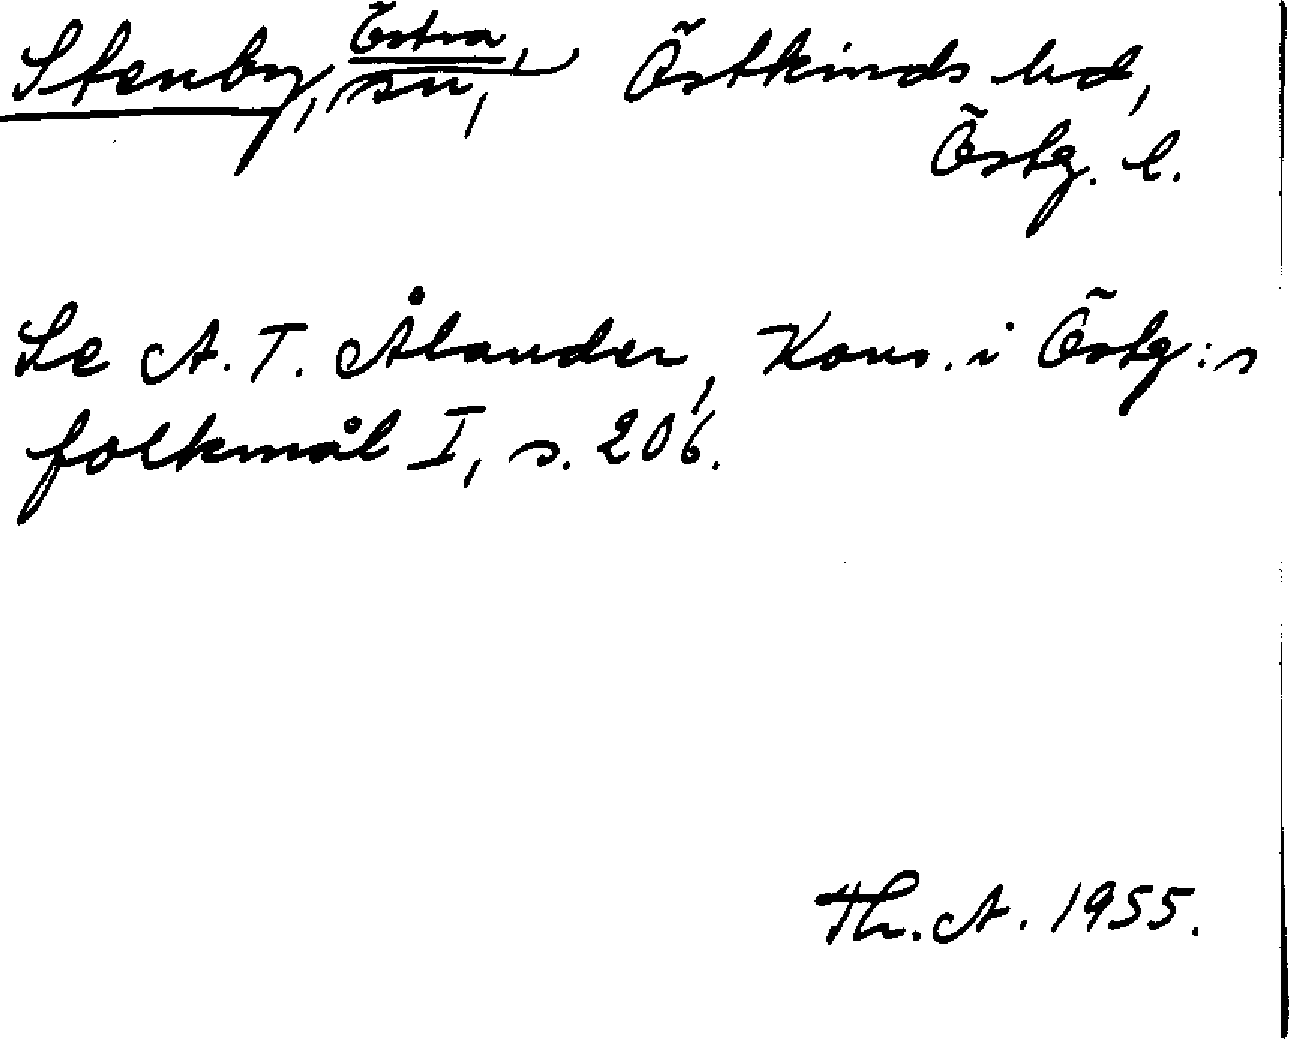 Stenby, Östra, sn, Östkinds hd,
Östg. l.
Se A. T. Ålander, Kons. i Östg:s
folkmål I, s. 206.
Th. A. 1955.